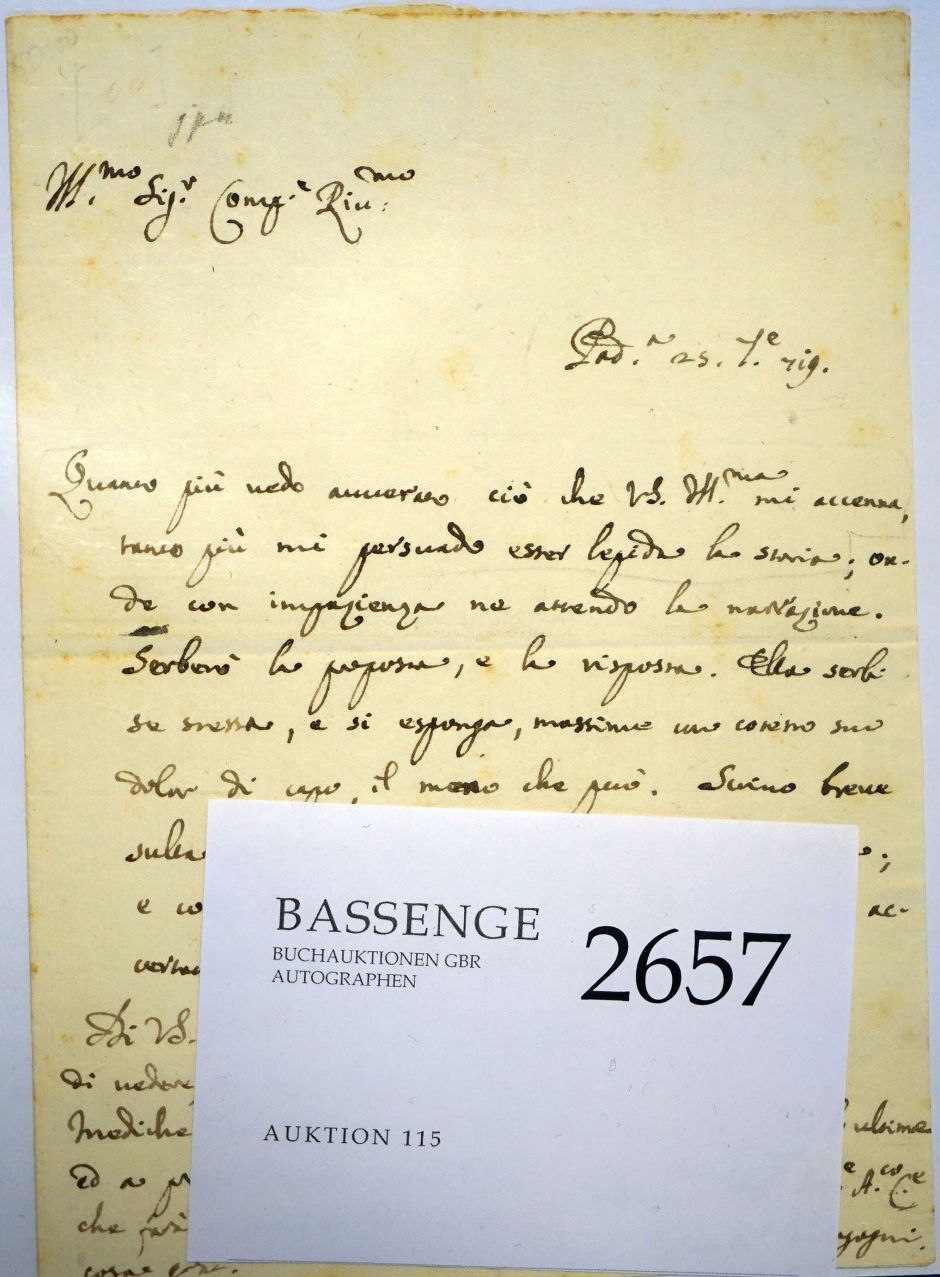 Ill.mo Sig.r Comp.e Riv.mo
Pad.a 25. 7.e 719.
Quanto più vedo avverato ciò che VS. Ill.ma mi accenna,
tanto più mi persuado esser lepida la storia; on-
de con impazienza ne attendo la narrazione.
Serberò la proposta, e la risposta. Ella serbi
se stessa, e si esponga, massime in cotesto suo
dolor di capo, il meno che può. Scrivo breve
sulla
;
e co
ac-
certa
Di VS.
di vedere,
Mediche
ultime
Ed a pr
e A.co C.e
che farà
gagni.
cosa
BASSENGE
BUCHAUKTIONEN GBR
AUTOGRAPHEN
2657
AUKTION 115